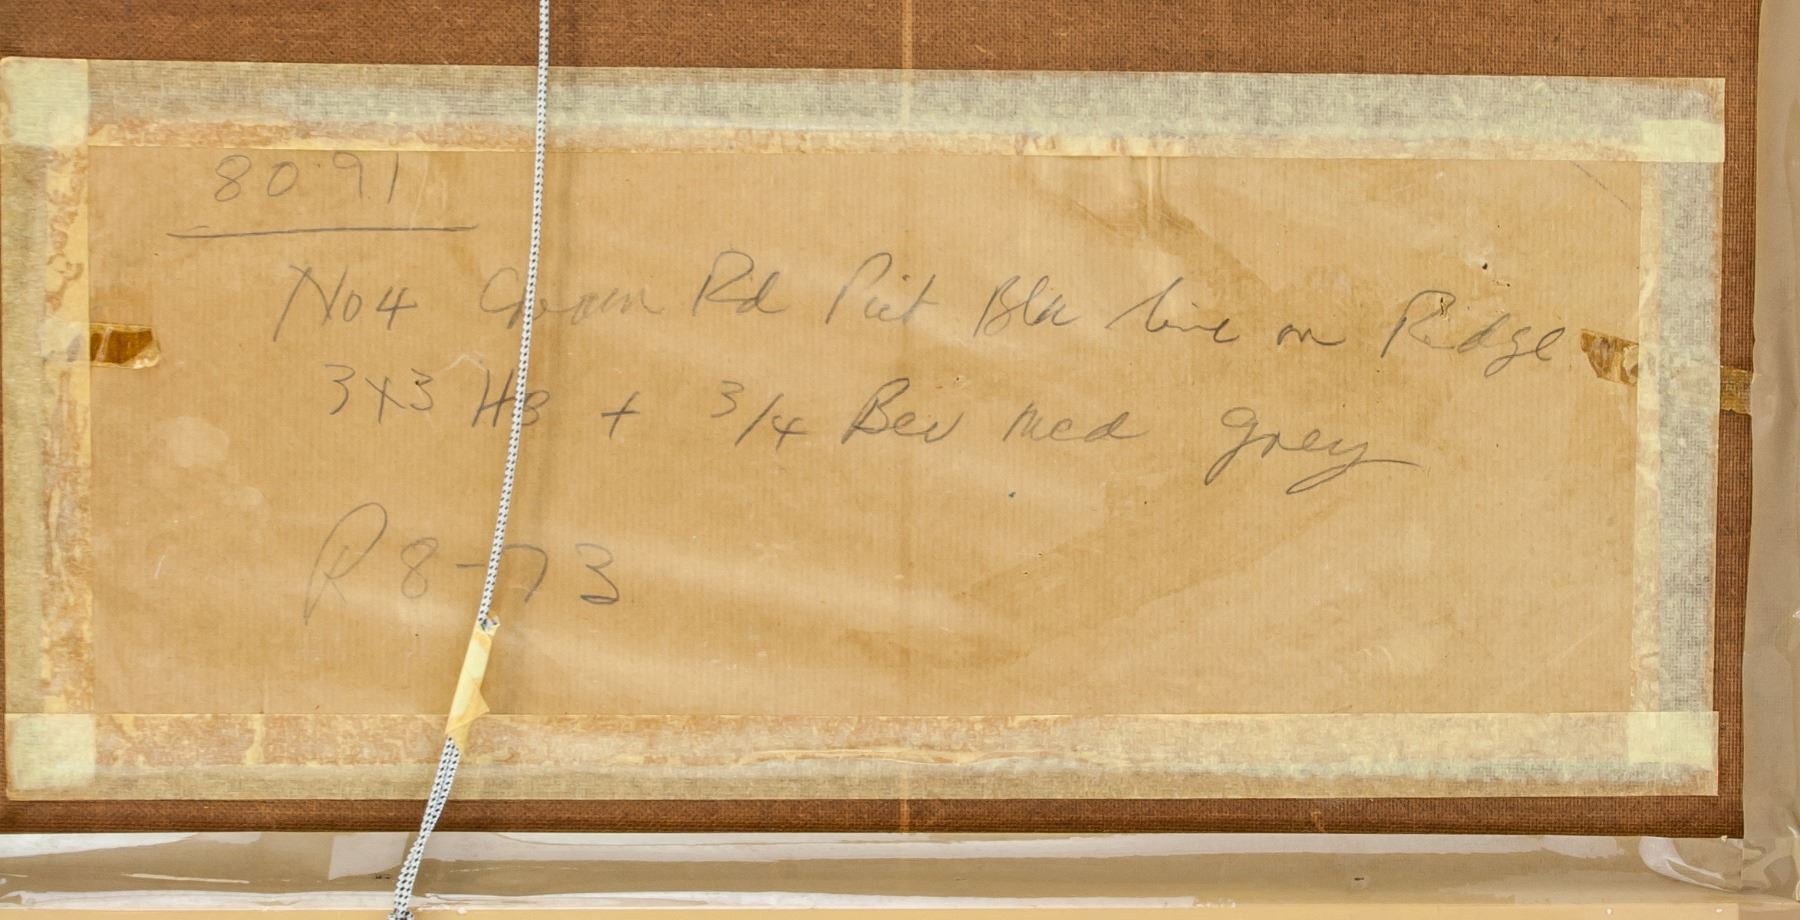 80.91
No 4 Cream Rd Pict Bla line on Ridge
3x3 HB + 3/4 Bev med grey
R 8-73